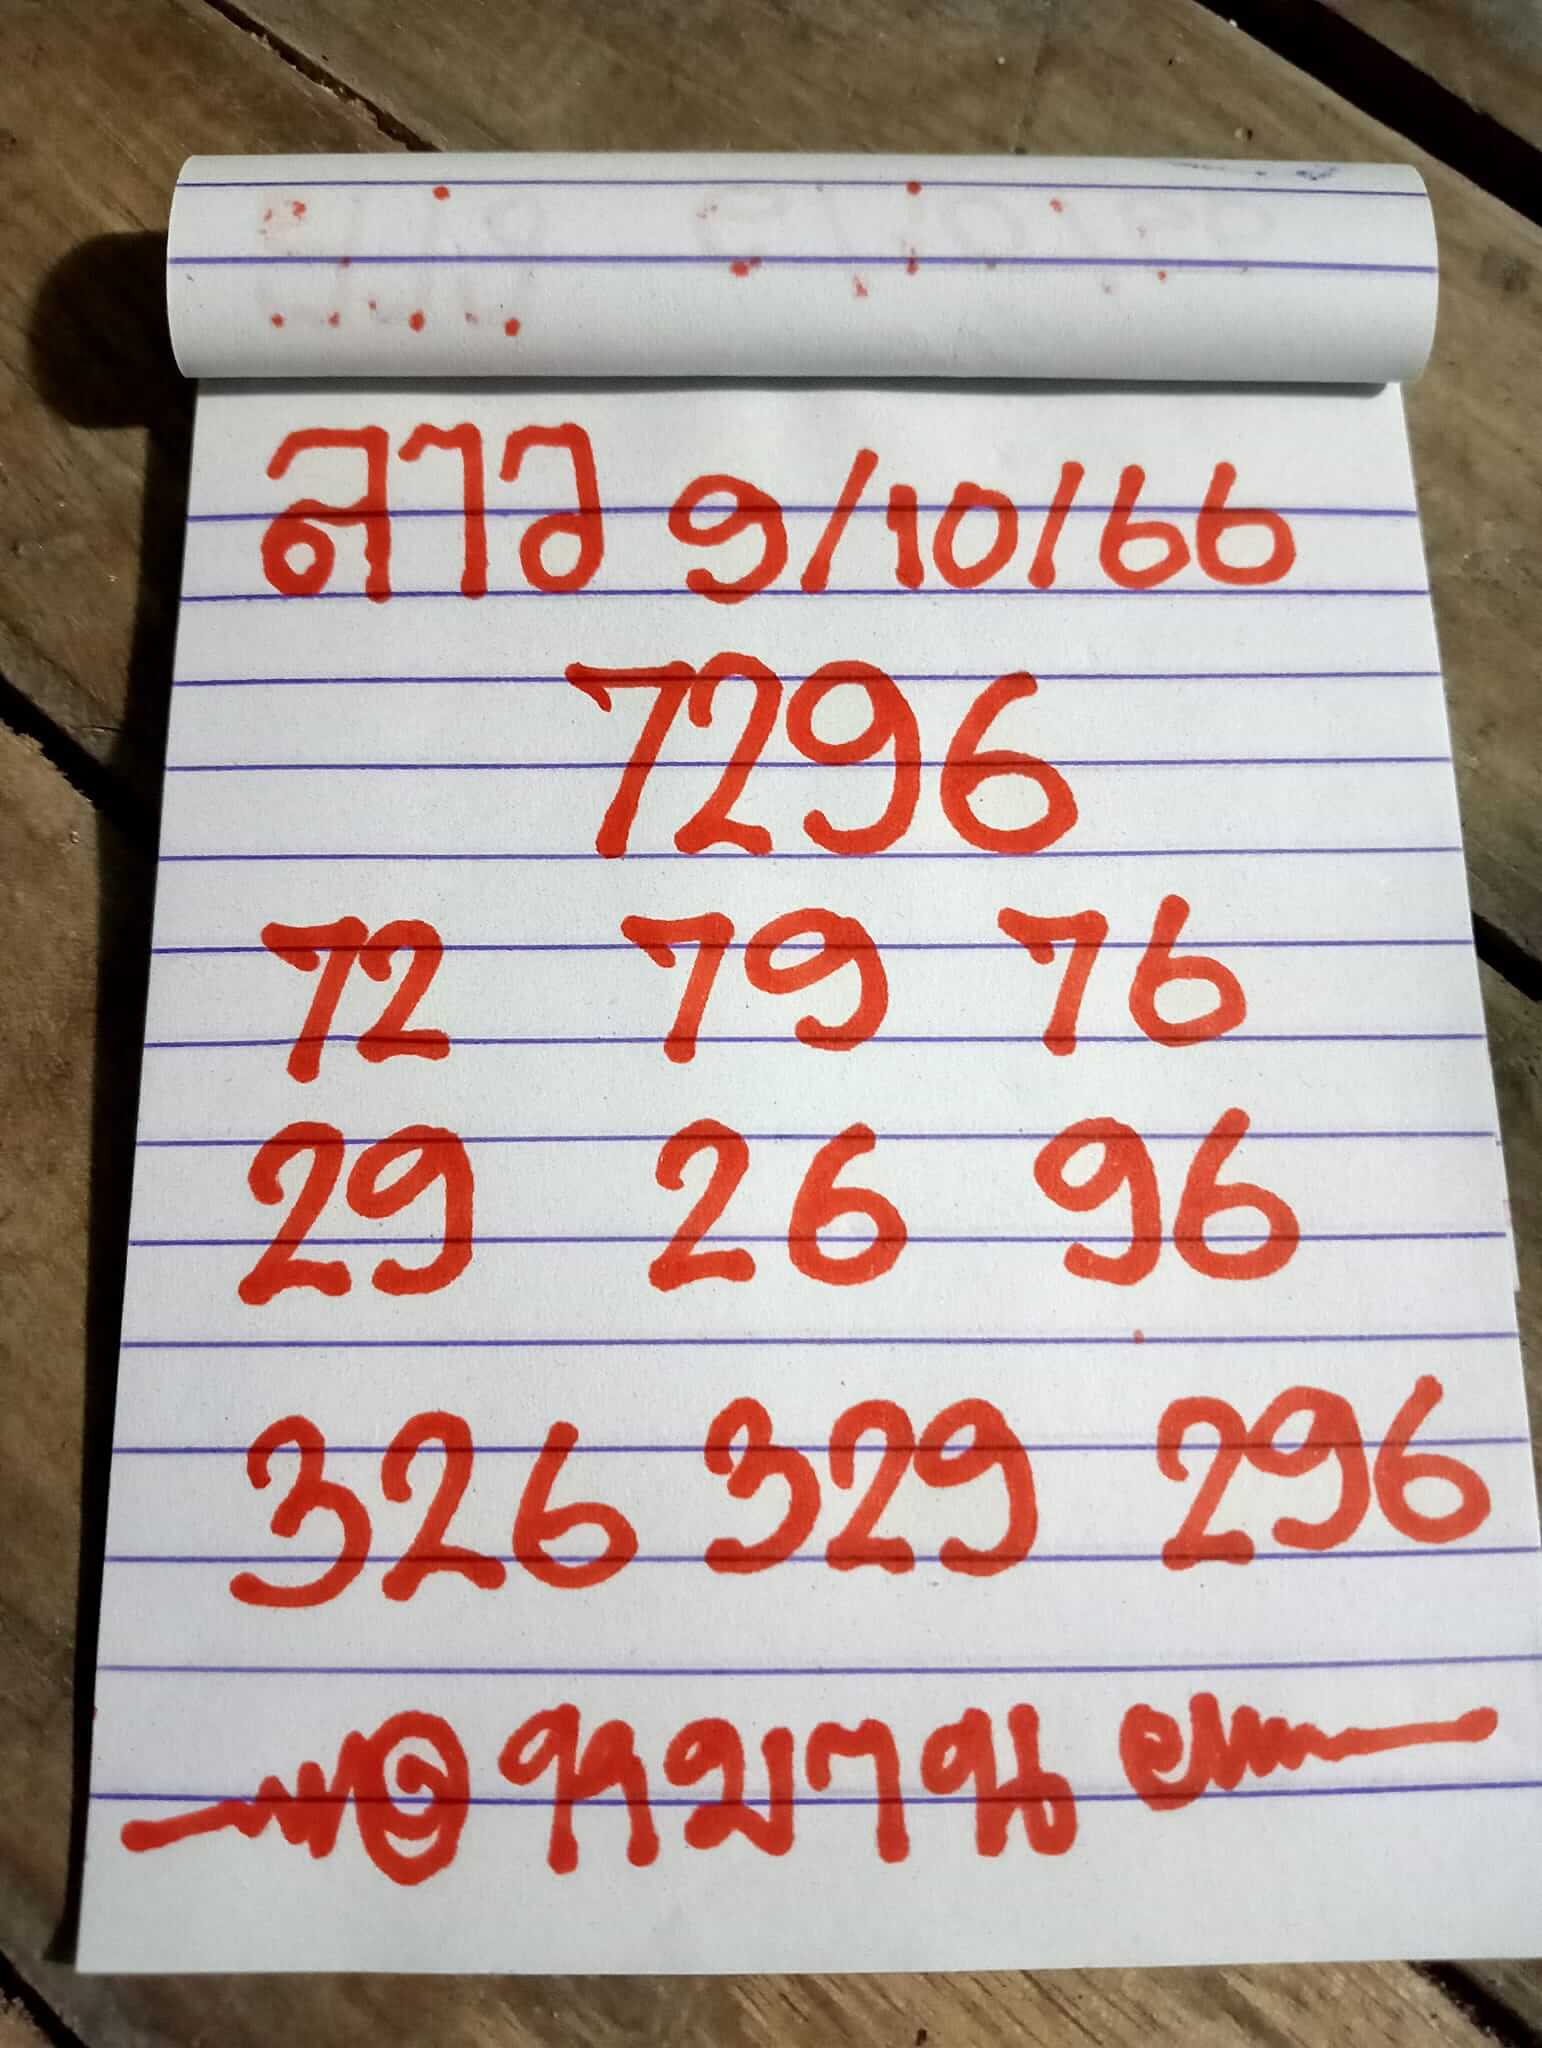 ลาว 9/10/66
7296
72 79 76
29 26 96
326 329 296